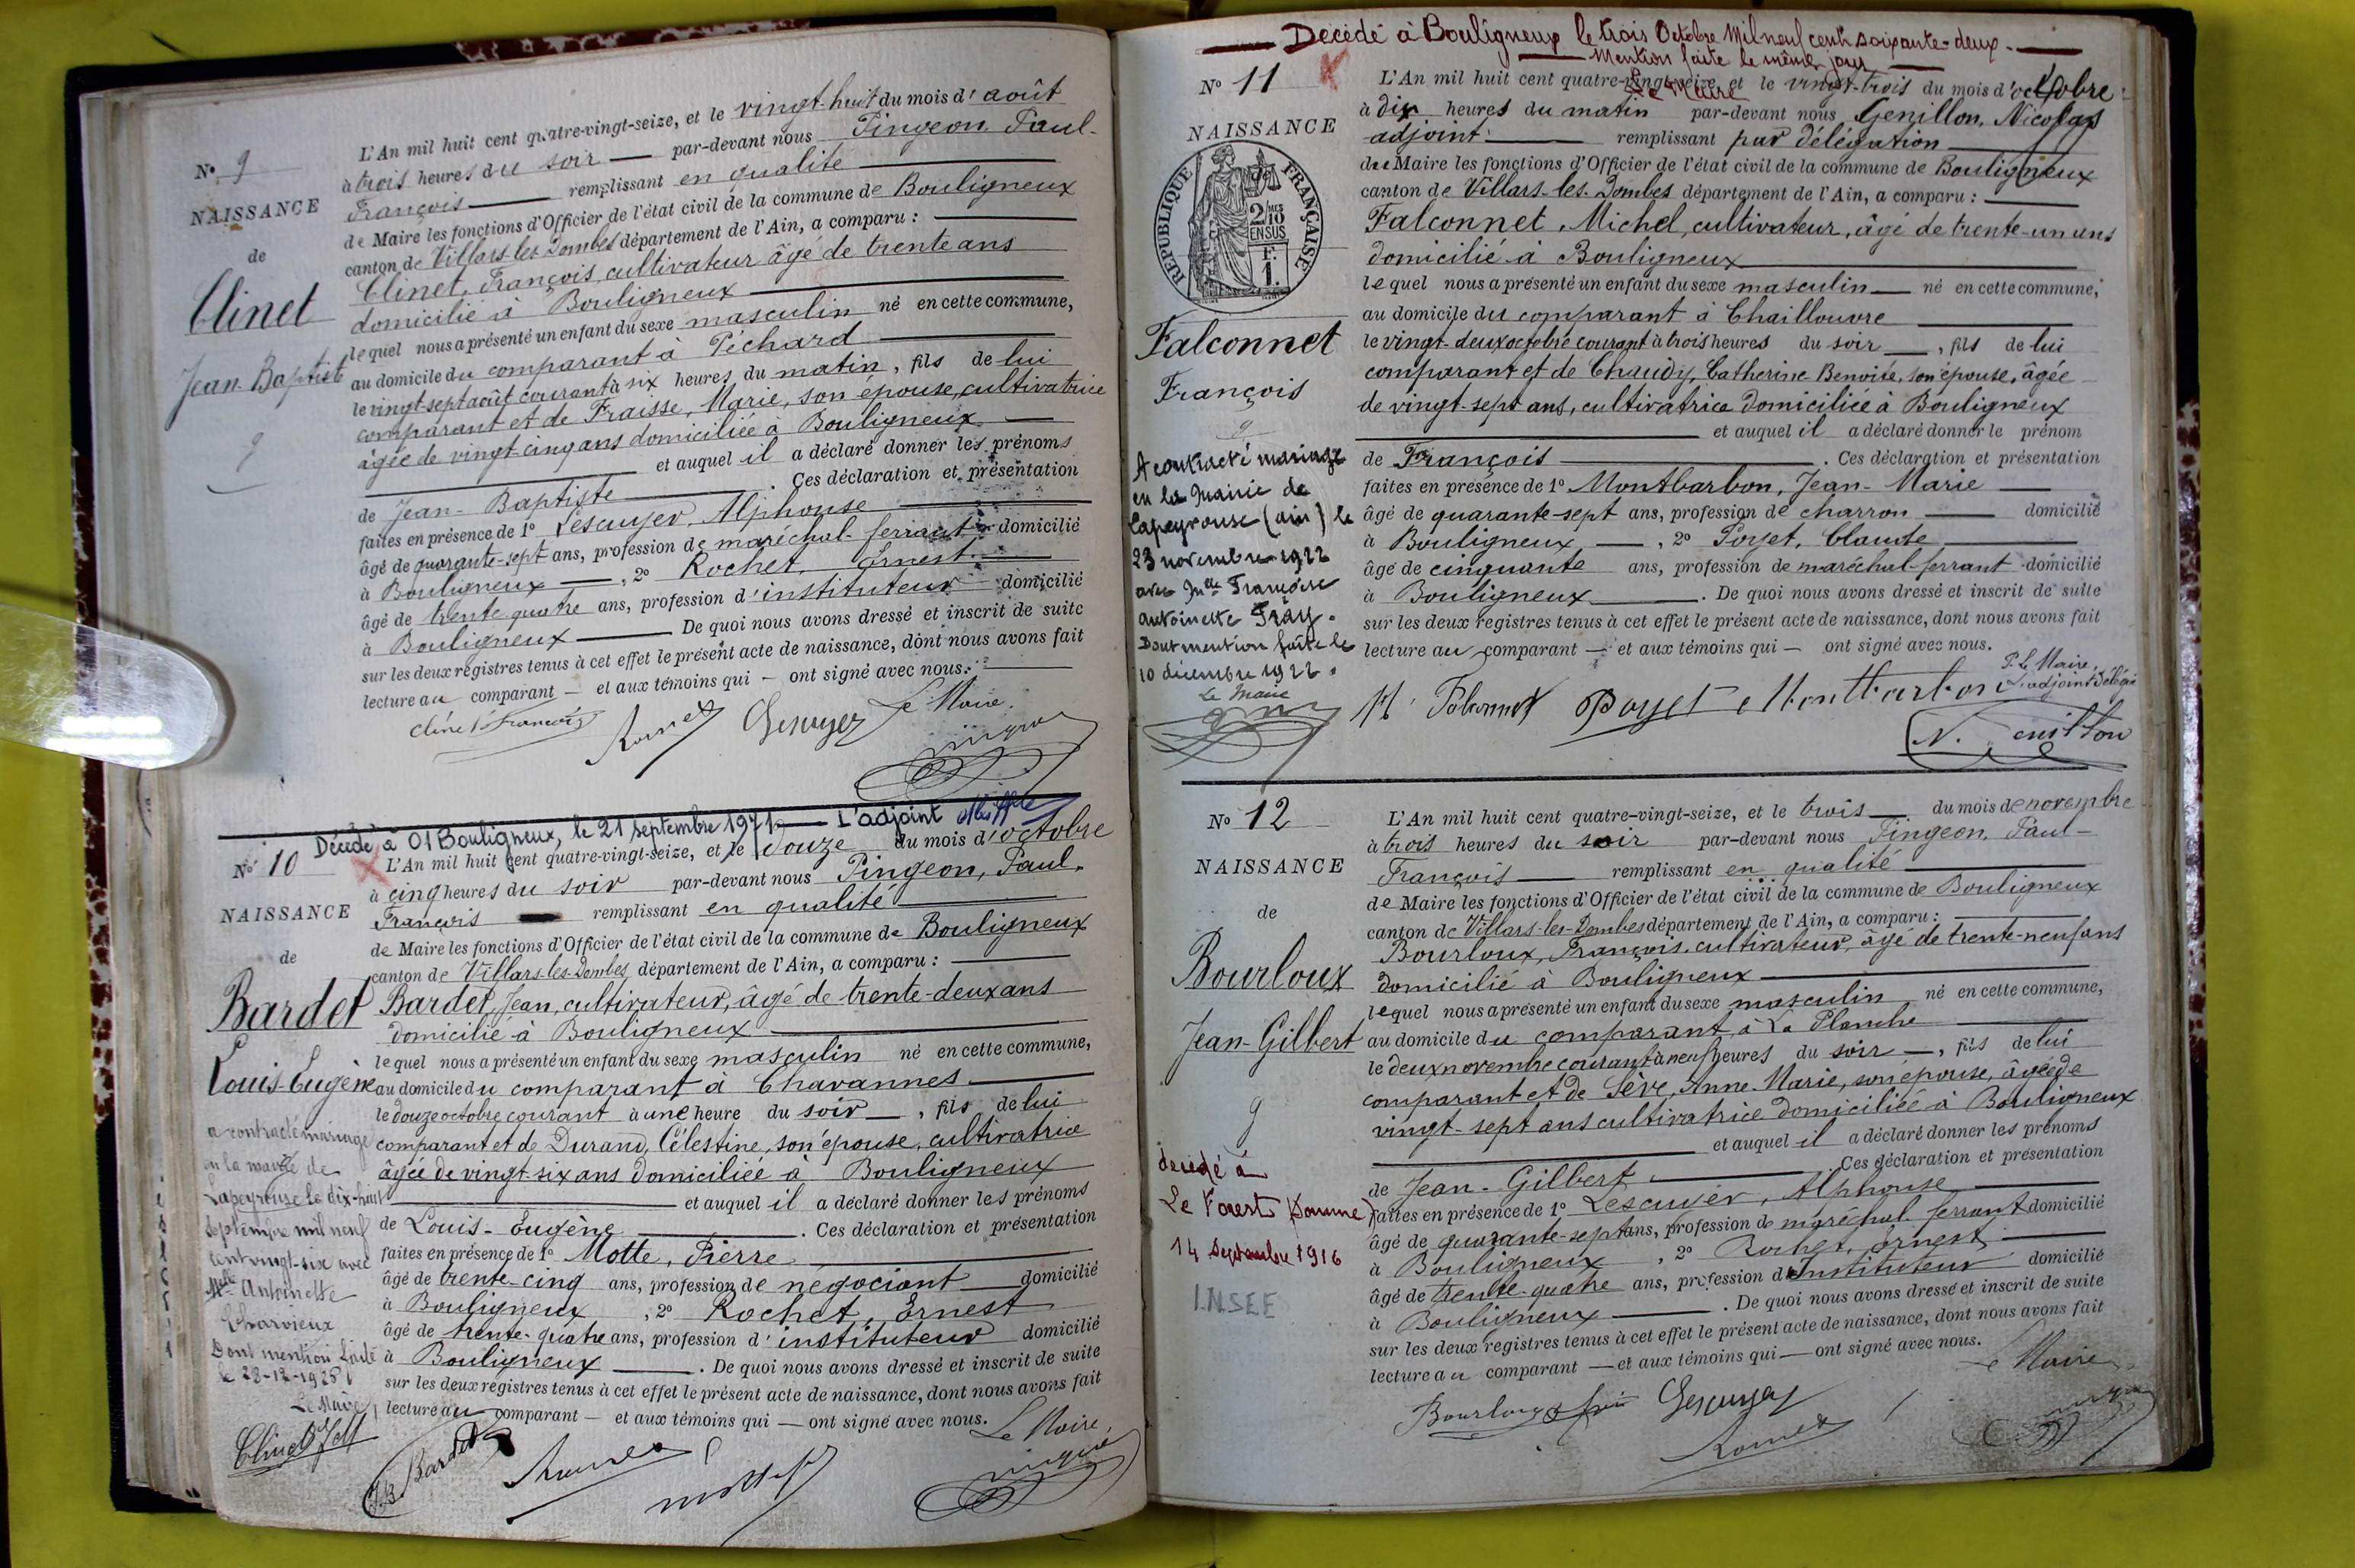 N° 9
NAISSANCE
de
Clinet
Jean-Baptiste
L'An mil huit cent quatre-vingt-seize, et le vingt-huit du mois d'août
à trois heures du soir — par-devant nous Pingeon, Paul-
François — remplissant en qualité
de Maire les fonctions d'Officier de l'état civil de la commune de Bouligneux
canton de Villars-les-Dombes département de l'Ain, a comparu :
Clinet, François, cultivateur âgé de trente ans
domicilié à Bouligneux
lequel nous a présenté un enfant du sexe masculin né en cette commune,
au domicile du comparant à Péchard
le vingt-sept août courant à six heures du matin, fils de lui
comparant et de Fraisse, Marie, son épouse, cultivatrice
âgée de vingt-cinq ans domiciliée à Bouligneux
et auquel il a déclaré donner les prénoms
de Jean-Baptiste . Ces déclaration et présentation
faites en présence de 1° Lescuyer, Alphonse
âgé de quarante-sept ans, profession de maréchal-ferrant domicilié
à Bouligneux —, 2° Rochet, Ernest
âgé de trente-quatre ans, profession d'instituteur domicilié
à Bouligneux — De quoi nous avons dressé et inscrit de suite
sur les deux registres tenus à cet effet le présent acte de naissance, dont nous avons fait
lecture au comparant — et aux témoins qui — ont signé avec nous.
Clinet François Lescuyer Le Maire.
Décédé à 01 Bouligneux, le 21 septembre 1971 — L'adjoint
N° 10
NAISSANCE
de
Bardet
Louis Eugène
a contracté mariage
en la mairie de
Lapeyrouse le dix-huit
septembre mil neuf
cent vingt-six avec
Melle Antoinette
Charvieux
Dont mention faite
le 28-12-1926
Le Maire
L'An mil huit cent quatre-vingt-seize, et le douze du mois d'octobre
à cinq heures du soir par-devant nous Pingeon, Paul-
François remplissant en qualité
de Maire les fonctions d'Officier de l'état civil de la commune de Bouligneux
canton de Villars-les-Dombes département de l'Ain, a comparu :
Bardet, Jean, cultivateur, âgé de trente-deux ans
domicilié à Bouligneux
lequel nous a présenté un enfant du sexe masculin né en cette commune,
au domicile du comparant à Chavannes
le douze octobre courant à une heure du soir —, fils de lui
comparant et de Durand, Célestine, son épouse, cultivatrice
âgée de vingt-six ans domiciliée à Bouligneux
et auquel il a déclaré donner les prénoms
de Louis-Eugène . Ces déclaration et présentation
faites en présence de 1° Motte, Pierre
âgé de trente-cinq ans, profession de négociant domicilié
à Bouligneux, 2° Rochet, Ernest
âgé de trente-quatre ans, profession d'instituteur domicilié
à Bouligneux . De quoi nous avons dressé et inscrit de suite
sur les deux registres tenus à cet effet le présent acte de naissance, dont nous avons fait
lecture au comparant — et aux témoins qui — ont signé avec nous.
Bardet Le Maire,
Décédé à Bouligneux le trois Octobre Mil neuf cent soixante-deux.
Mention faite le même jour
Le Maire
N° 11
NAISSANCE
REPUBLIQUE FRANÇAISE
2/10 EN SUS
F. 1.
Falconnet
François
A contracté mariage
en la Mairie de
Lapeyrouse (ain) le
23 novembre 1922
avec Melle Françoise
Antoinette Fray.
Dont mention faite le
10 décembre 1922.
Le Maire
L'An mil huit cent quatre-vingt-seize, et le vingt-trois du mois d'octobre
à dix heures du matin par-devant nous Genillon, Nicolas
adjoint — remplissant par délégation
du Maire les fonctions d'Officier de l'état civil de la commune de Bouligneux
canton de Villars-les-Dombes département de l'Ain, a comparu :
Falconnet, Michel, cultivateur, âgé de trente-un ans
domicilié à Bouligneux
lequel nous a présenté un enfant du sexe masculin — né en cette commune,
au domicile du comparant à Chaillouvre
le vingt-deux octobre courant à trois heures du soir —, fils de lui
comparant et de Chaudy, Catherine Benoite, son épouse, âgée
de vingt-sept ans, cultivatrice domiciliée à Bouligneux
et auquel il a déclaré donner le prénom
de François . Ces déclaration et présentation
faites en présence de 1° Montbarbon, Jean-Marie
âgé de quarante-sept ans, profession de charron — domicilié
à Bouligneux —, 2° Poyet, Claude
âgé de cinquante ans, profession de maréchal-ferrant domicilié
à Bouligneux . De quoi nous avons dressé et inscrit de suite
sur les deux registres tenus à cet effet le présent acte de naissance, dont nous avons fait
lecture au comparant — et aux témoins qui — ont signé avec nous.
P. Le Maire,
L'adjoint Délégué
Poyet Montbarbon
N. Genillon
N° 12
NAISSANCE
de
Bourloux
Jean-Gilbert
décédé à
Le Forest (Somme)
14 septembre 1916
I.N.S.E.E
L'An mil huit cent quatre-vingt-seize, et le trois du mois de novembre
à trois heures du soir par-devant nous Pingeon, Paul-
François — remplissant en qualité
de Maire les fonctions d'Officier de l'état civil de la commune de Bouligneux
canton de Villars-les-Dombes département de l'Ain, a comparu :
Bourloux, François, cultivateur, âgé de trente-neuf ans
domicilié à Bouligneux
lequel nous a présenté un enfant du sexe masculin né en cette commune,
au domicile du comparant, à La Planche
le deux novembre courant à neuf heures du soir —, fils de lui
comparant et de Sève, Anne-Marie, son épouse, âgée de
vingt-sept ans cultivatrice domiciliée à Bouligneux
et auquel il a déclaré donner les prénoms
de Jean-Gilbert . Ces déclaration et présentation
faites en présence de 1° Lescuyer, Alphonse
âgé de quarante-sept ans, profession de maréchal-ferrant domicilié
à Bouligneux, 2° Rochet, Ernest
âgé de trente-quatre ans, profession d'Instituteur domicilié
à Bouligneux . De quoi nous avons dressé et inscrit de suite
sur les deux registres tenus à cet effet le présent acte de naissance, dont nous avons fait
lecture au comparant — et aux témoins qui — ont signé avec nous.
Le Maire
Lescuyer